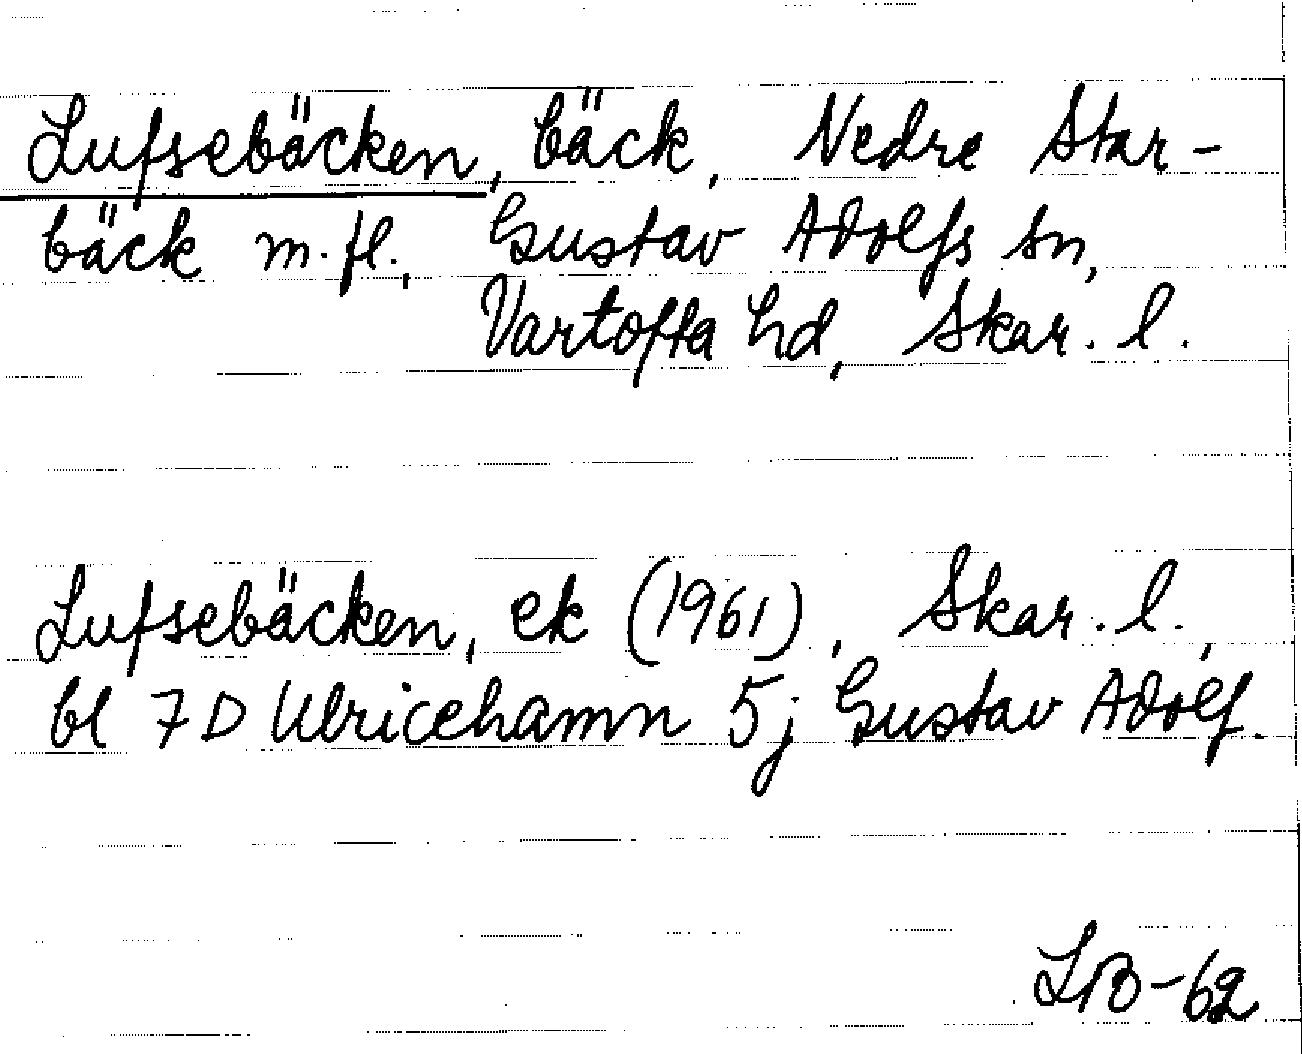 Lufsebäcken, bäck, Nedre Star-
bäck m.fl., Gustav Adolfs sn,
Vartofta hd, Skar. l.
Lufsebäcken, ek (1961), Skar. l.,
bl 7D Ulricehamn 5j Gustav Adolf.
LB-62